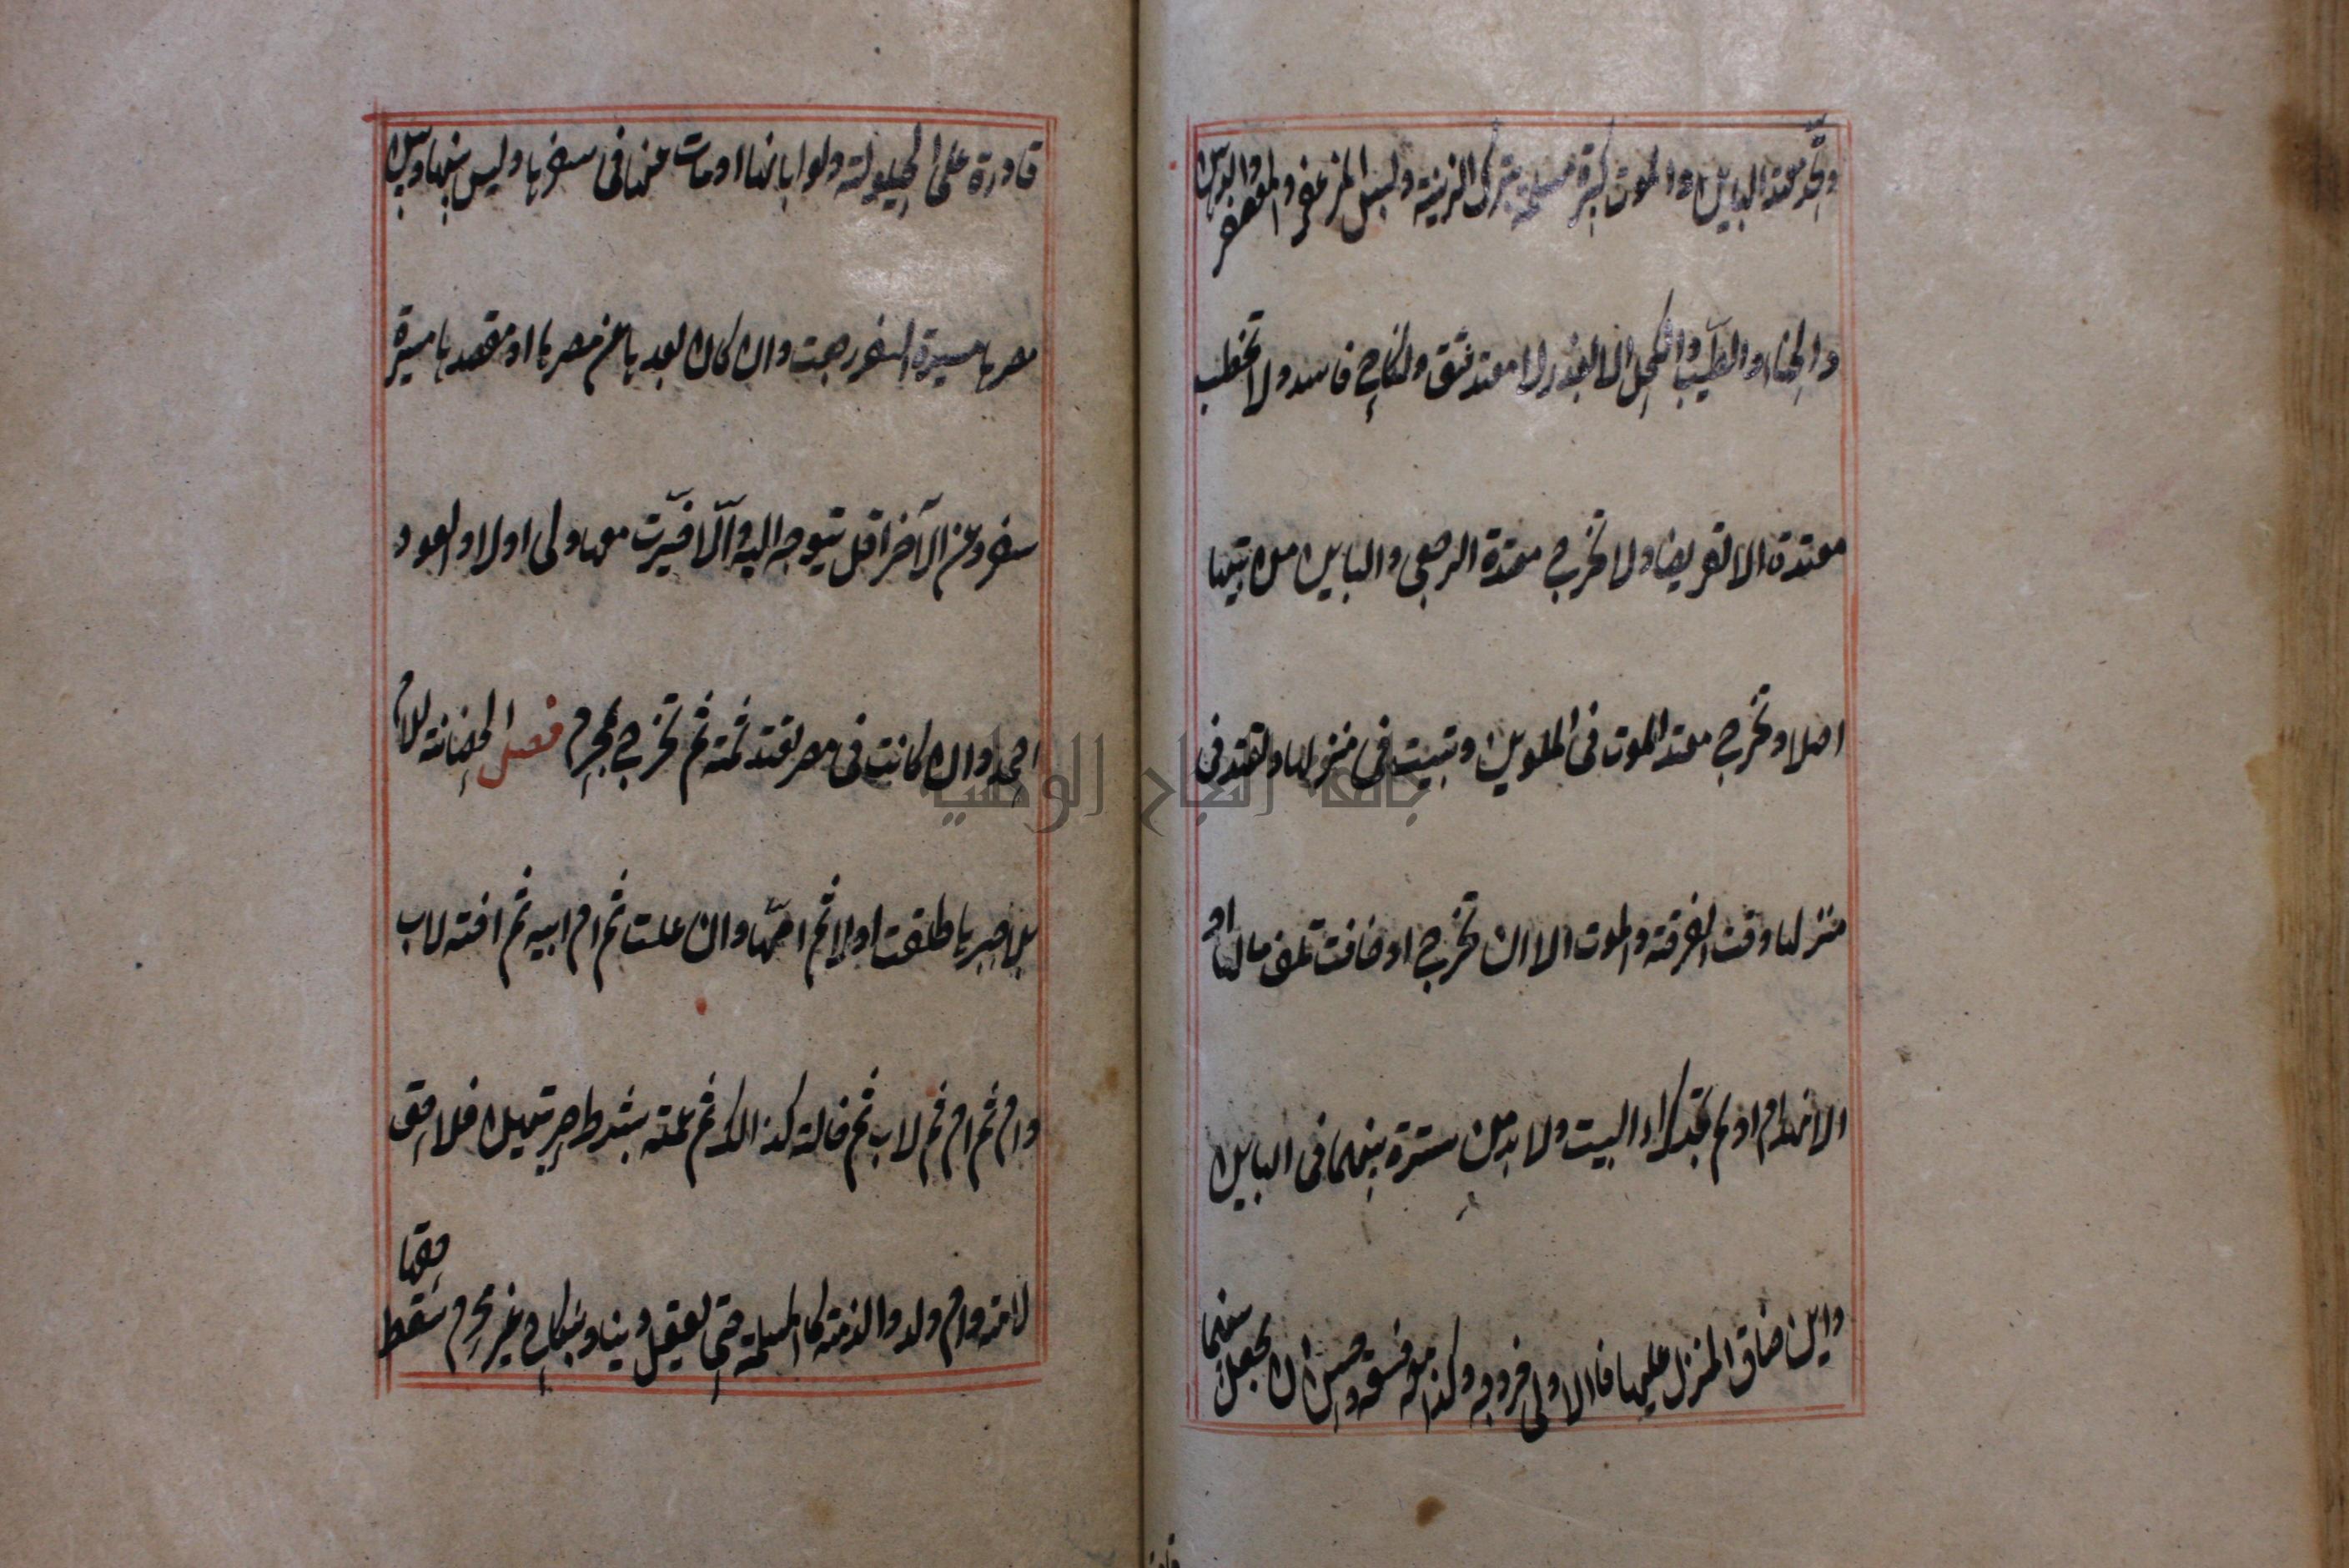 وتحد معتدة البائن والموت كبيرة مسلمة بترك الزينة ولبس المزعفر والمعصفر والدهن
والحناء والطيب والكحل الا بعذر لا معتدة عتق ونكاح فاسد ولا تخطب
معتدة الا تعريضا ولا تخرج معتدة الرجعي والبائن من بيتها
اصلا وتخرج معتدة الموت في الملوين وتبيت في منزلها وتعتد في
منزلها وقت الفرقة والموت الا ان تخرج او خافت تلف مالها او
الانهدام او لم تجد كراء البيت ولا بد من سترة بينهما في البائن
وان ضاق المنزل عليهما فالاولى خروجه وكذا مع فسقه وحسن ان يجعل بينهما
قادرة على الحيلولة ولو ابانها او مات عنها في سفرها وليس بينها وبين
مصرها مسيرة السفر رجعت وان كان بعدها عن مصرها او مقصدها مسيرة
سفر وعن الآخر اقل يتوجه اليه والّا خيّرت معها ولي او لا والعود
احمد وان كانت في مصر تعتد ثمة ثم تخرج بمحرم فصل الحضانة للام
بلا جبرها طلقت او لا ثم امّها وان علت ثم ام ابيه ثم اخته لاب
وام ثم ام ثم لاب ثم خالة كذلك ثم عمته بشرط حريتهن فلا حق
لامة وام ولد والذمية كالمسلمة حتى يعقل دينا وبنكاح غير محرم سقط حقها
جامعة النجاح الوطنية